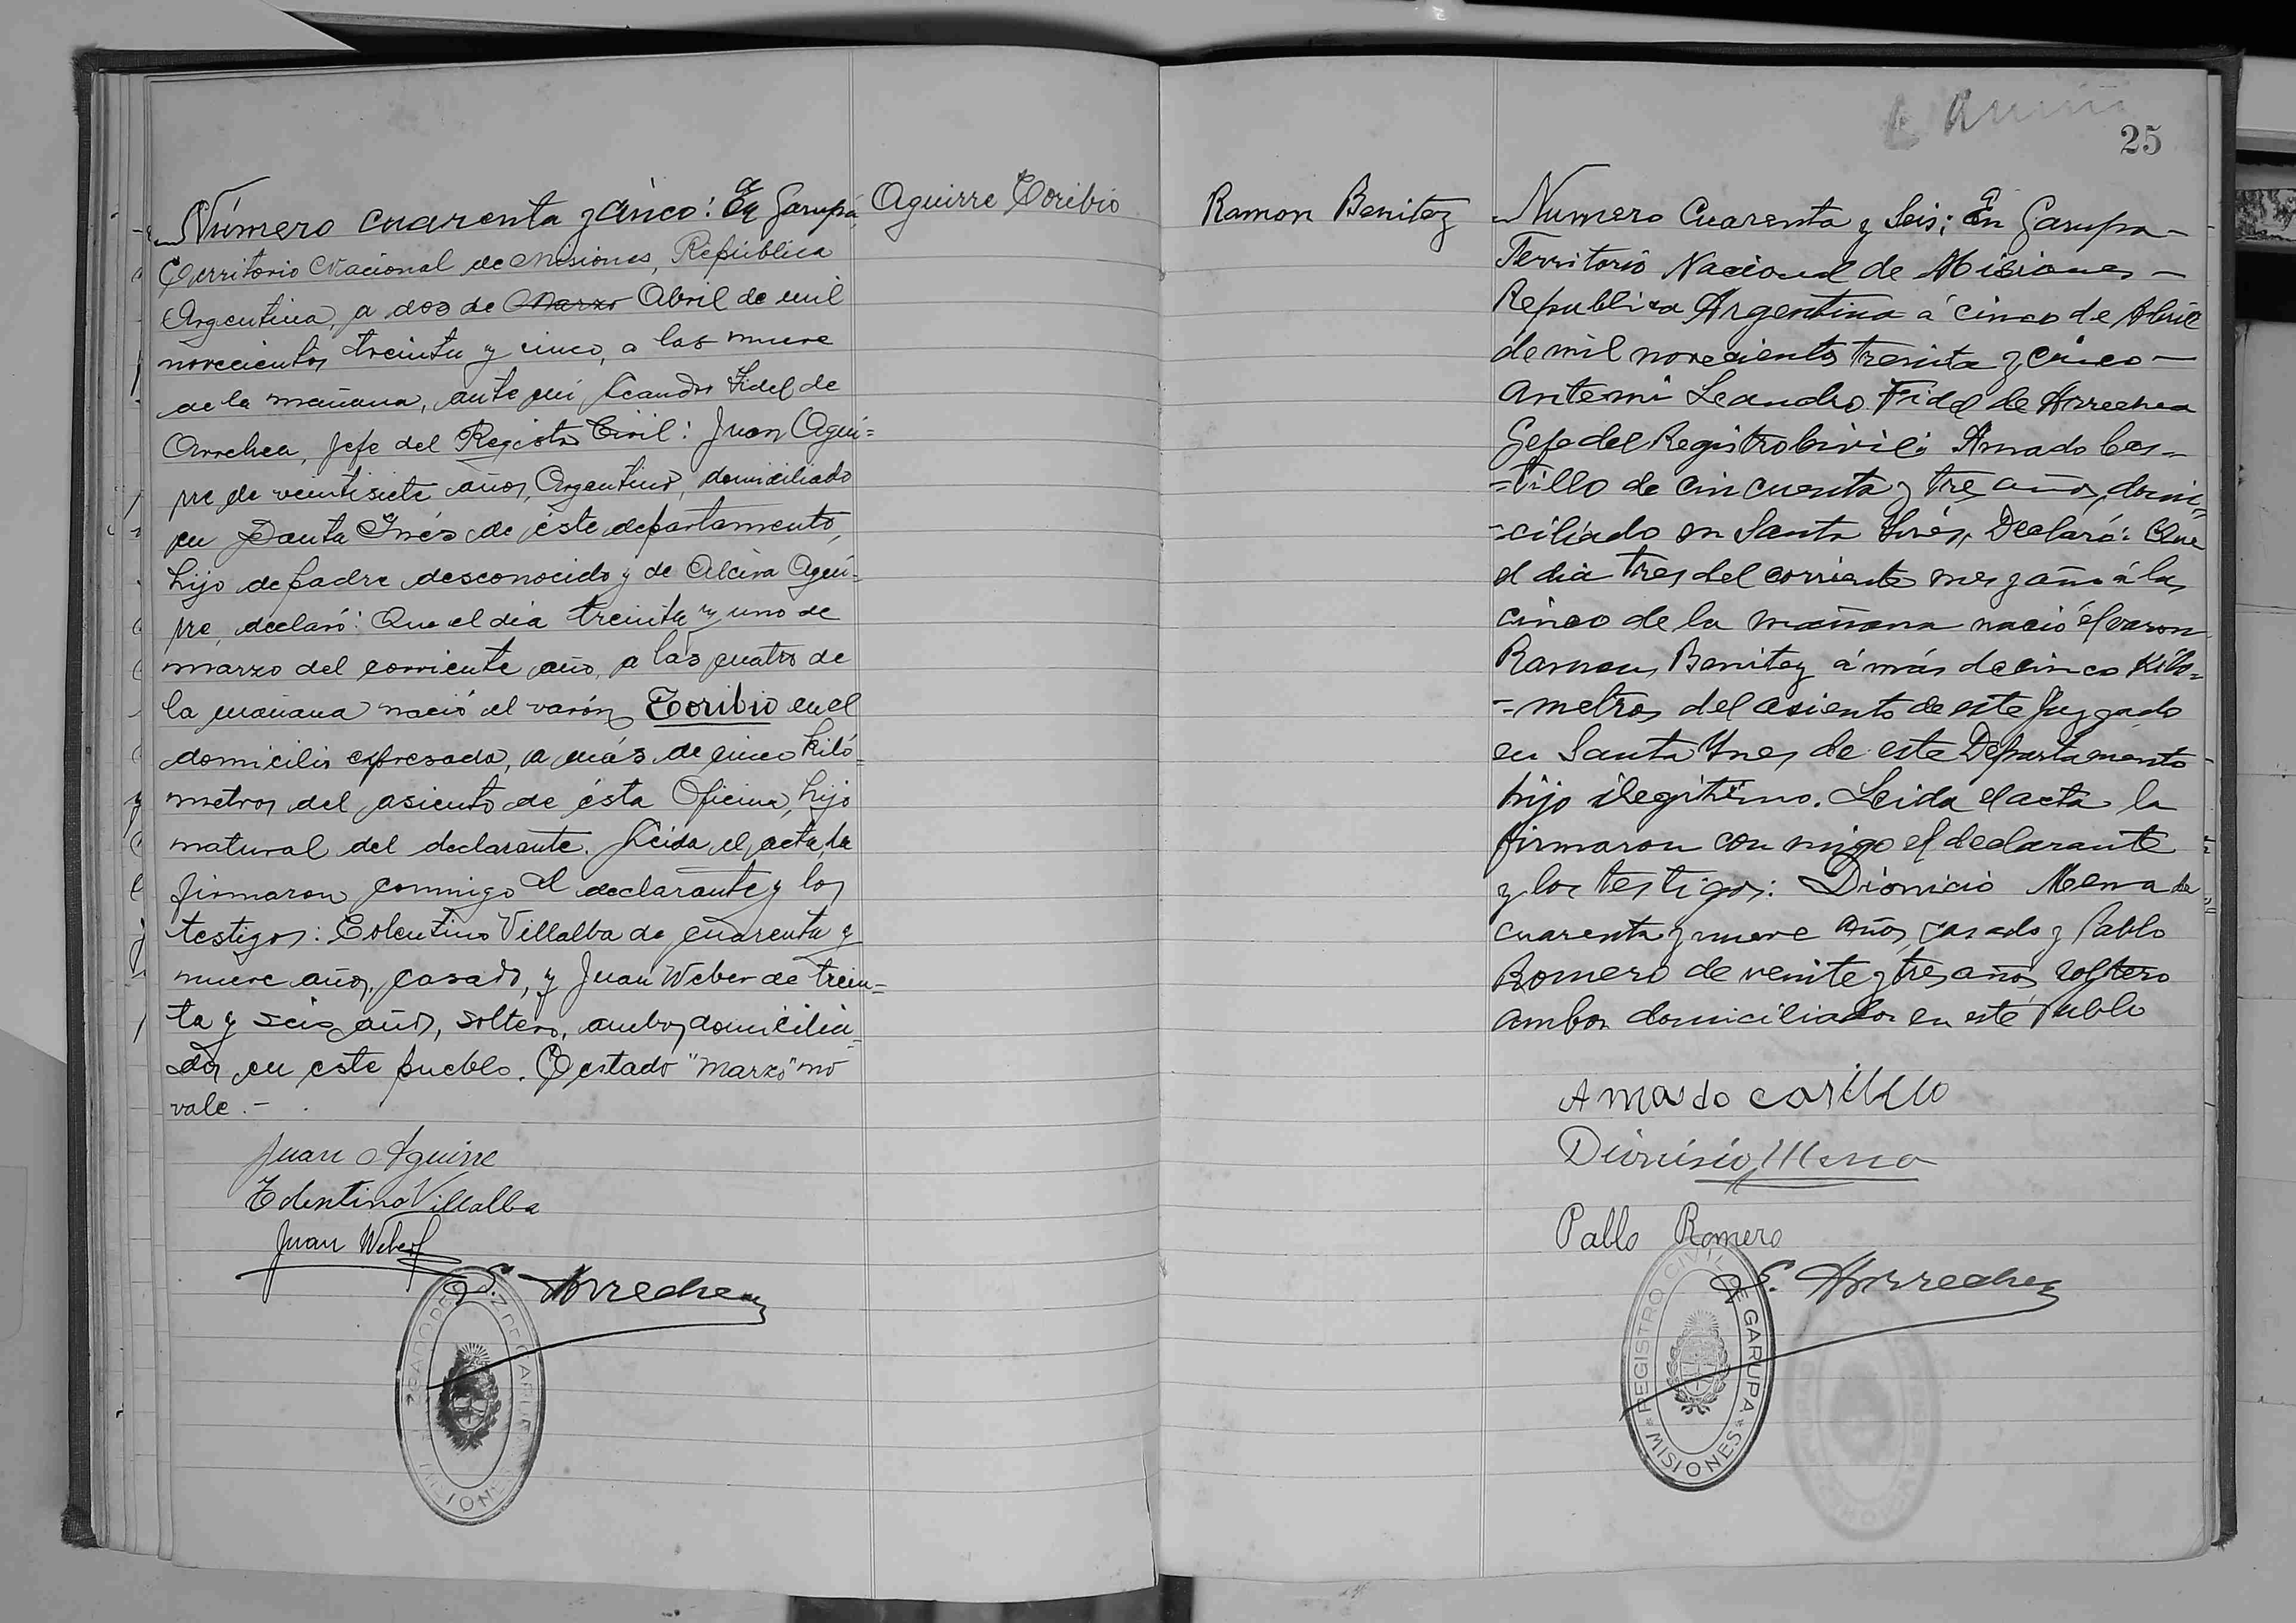 Número cuarenta y cinco: En Garupá,
Territorio Nacional de Misiones, República
Argentina, a dos de Marzo Abril de mil
novecientos treinta y cinco, a las nueve
de la mañana, ante mi, Leandro Fidel de
Arrechea, Jefe del Registro Civil: Juan Agui=
rre de veintisiete años, Argentino, domiciliado
en Santa Inés de éste departamento,
hijo de padre desconocido y de Alcira Agui=
rre, declaró: Que el día treinta y uno de
marzo del corriente año, a las cuatro de
la mañana nació el varón Toribio en el
domicilio expresado, a más de cinco kiló=
metros del asiento de ésta Oficina, hijo
natural del declarante. Leida el acta, la
firmaron conmigo el declarante y los
testigos: Tolentino Villalba de cuarenta y
nueve años, casado, y Juan Weber de trein=
ta y seis años, soltero, ambos domicilia=
dos en este pueblo. Testado "Marzo" no
vale.-
Juan Aguirre
Tolentino Villalba
Juan Weber
L. Arrechea
MISIONES
Aguirre Toribio
Ramon Benitez
25
Numero Cuarenta y Seis; En Garupa-
Territorio Nacional de Misiones-
Republica Argentina á cinco de Abril
de mil novecientos treinta y cinco-
Antemi Leandro Fidel de Arrechea
Gefe del Registro Civil: Amado Cas=
=tillo de cincuenta y tres años, domi=
=ciliado en Santa Inés, Declaró: Que
el dia tres del corriente mes y año á las
cinco de la mañana nació el varon
Ramon Benitez á más de cinco Kilo=
=metros del asiento de este Juzgado
en Santa Ynes de este Departamento
hijo ilegitimo. Leida el acta la
firmaron con migo el declarante
y los testigos: Dionicio Mema de
cuarenta y nueve años, casado y Pablo
Romero de veinte y tres años soltero
ambos domiciliados en este Pueblo
Amado Castillo
Dionisio
Pablo Romero
L. Arrechea
REGISTRO CIVIL DE GARUPA
* MISIONES *